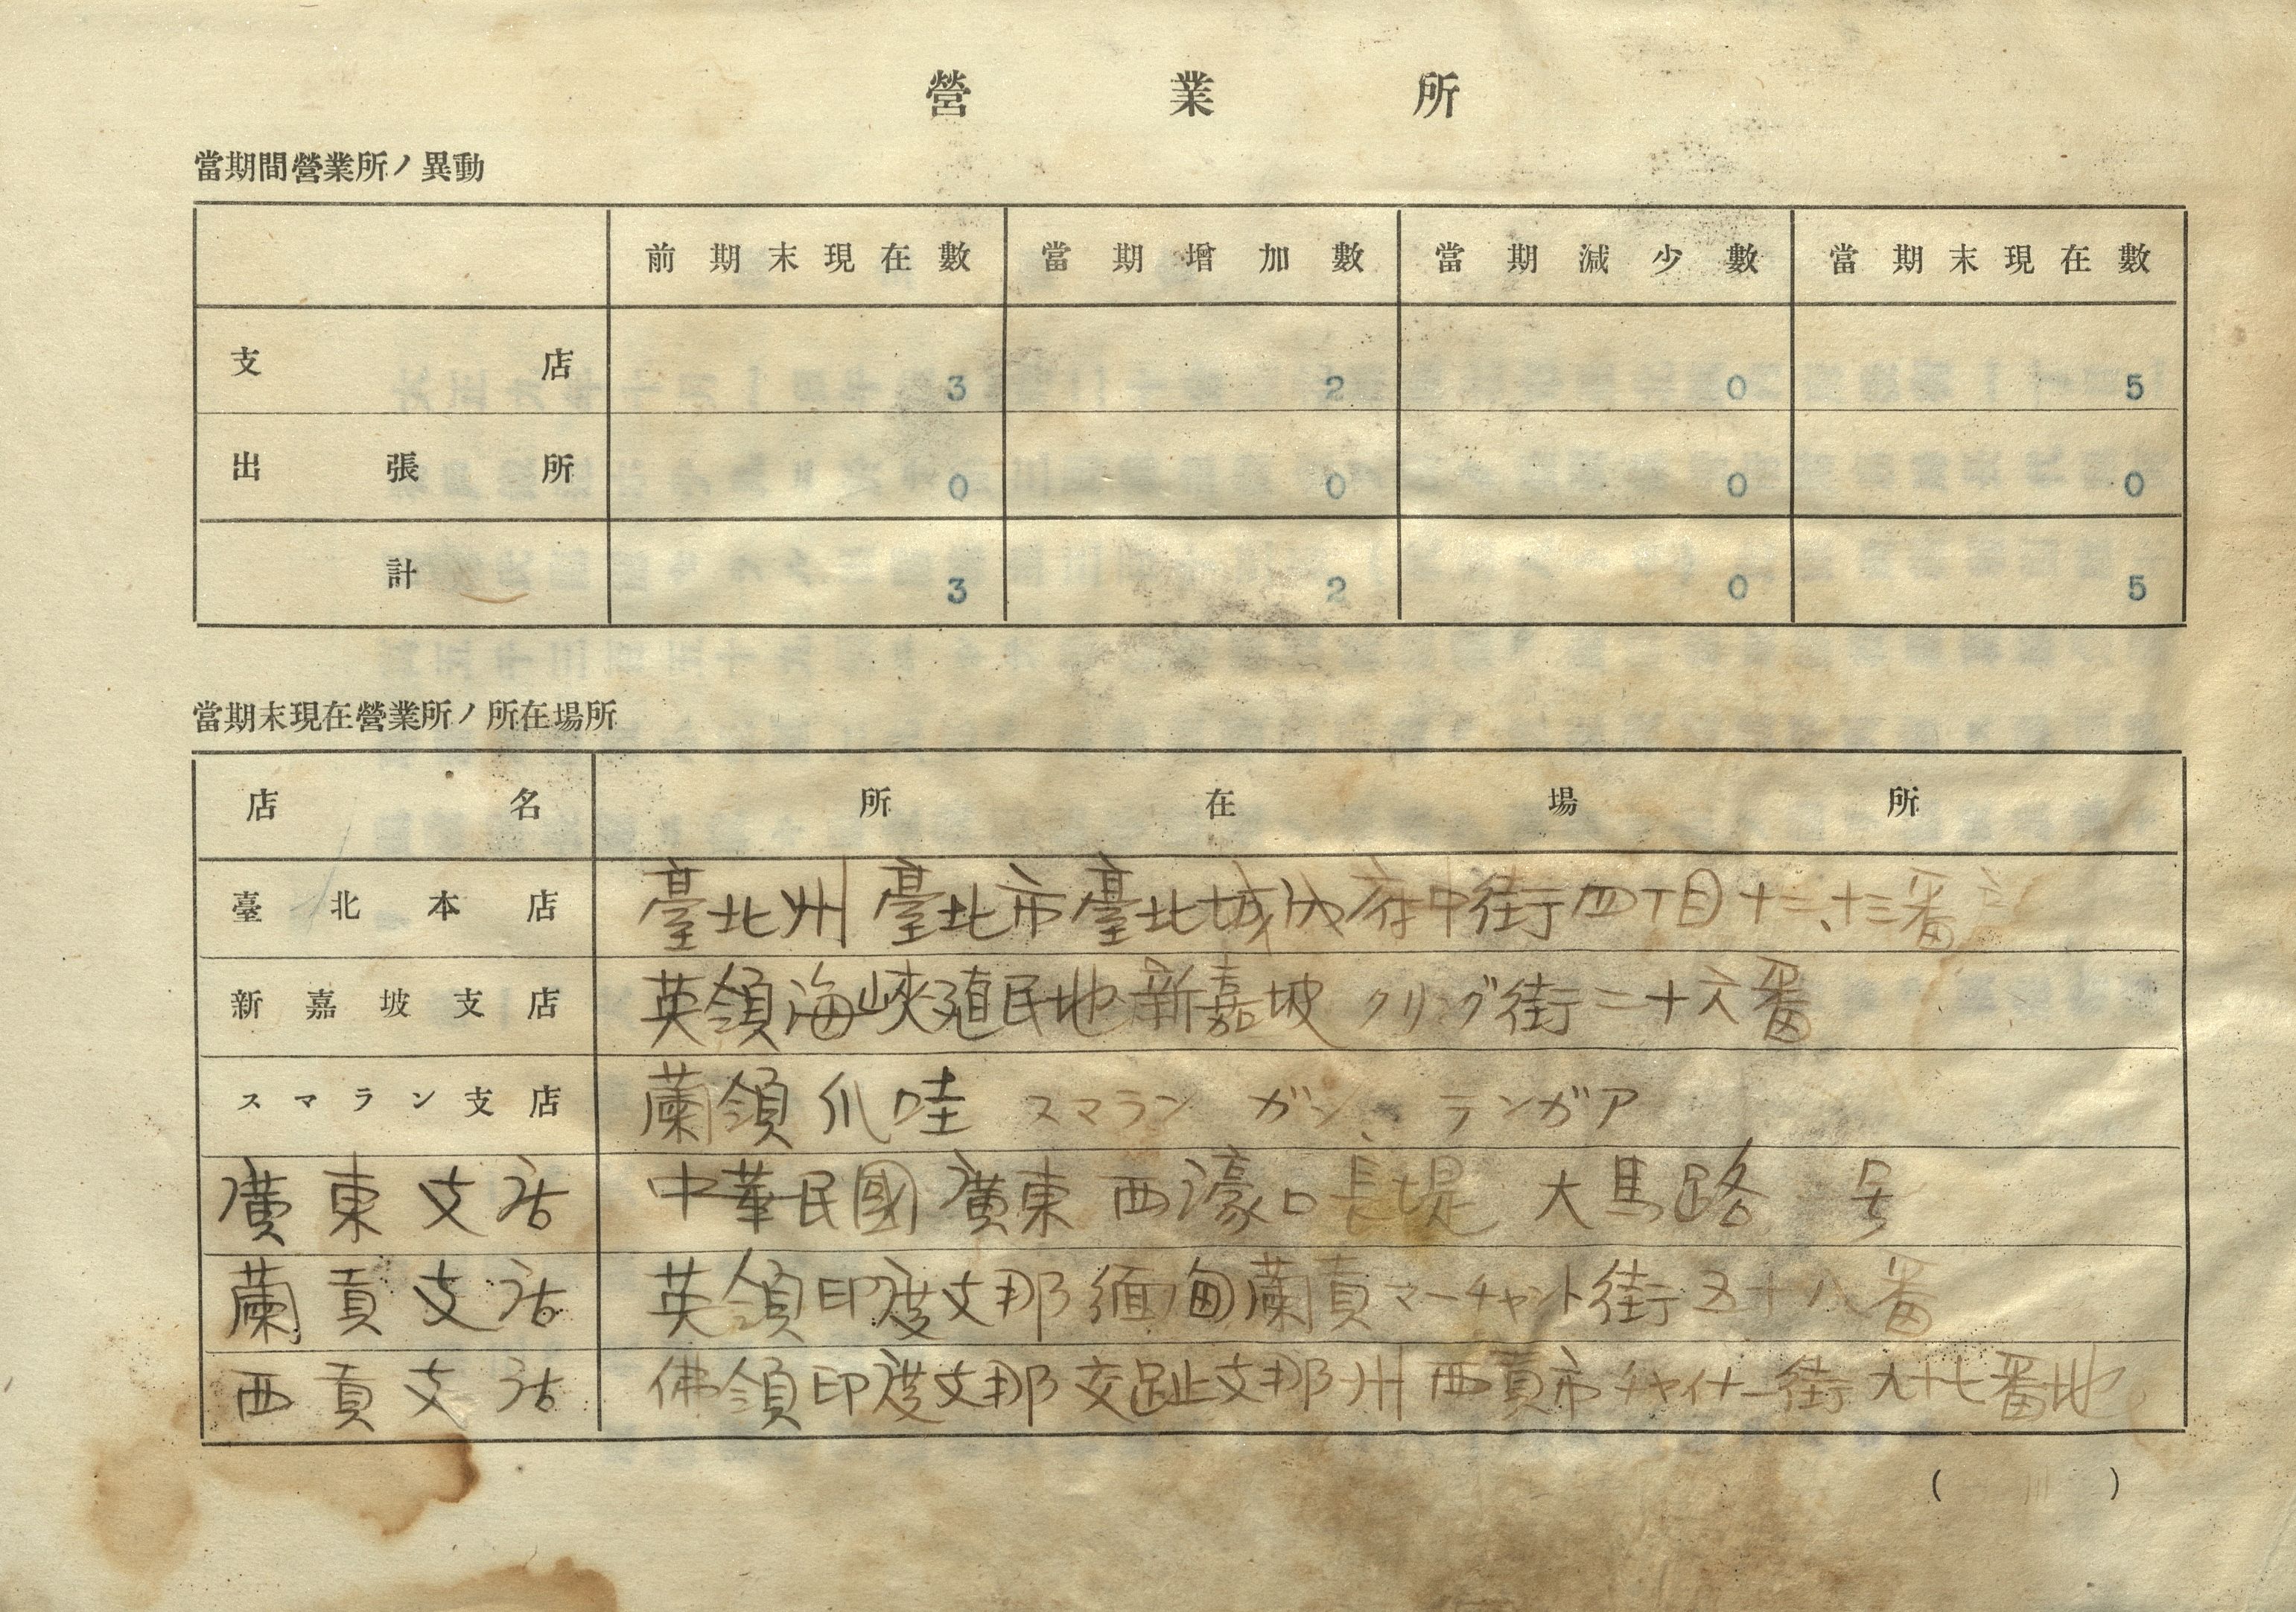 營業所
當期間營業所ノ異動
前期末現在數 當期增加數 當期減少數 當期末現在數
支店 3 2 0 5
出張所 0 0 0 0
計 3 2 0 5
當期末現在營業所ノ所在場所
店名 所在場所
臺北本店 臺北州臺北市臺北城內府中街四丁目十二、十三番
新嘉坡支店 英領海峽殖民地新嘉坡クリング街二十六番
スマラン支店 蘭領爪哇 スマラン ガン、テンガア
廣東支店 中華民國廣東西濠口長堤 大馬路 号
蘭貢支店 英領印度支那緬甸蘭貢マーチャント街五十八番
西貢支店 佛領印度支那交趾支那州西貢市チャイナー街九十七番地
( )